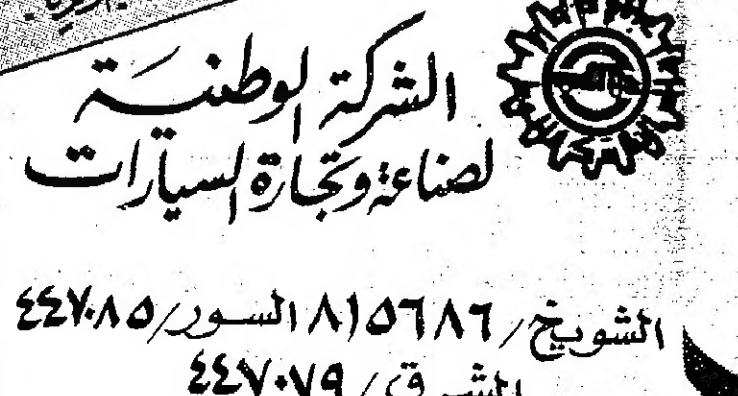 الشركة الوطنية
لصناعة وتجارة السيارات
الشويخ/ ٨١٥٦٨٦ السور/ ٤٤٧٠٨٥
الشرق/ ٤٤٧٠٧٩